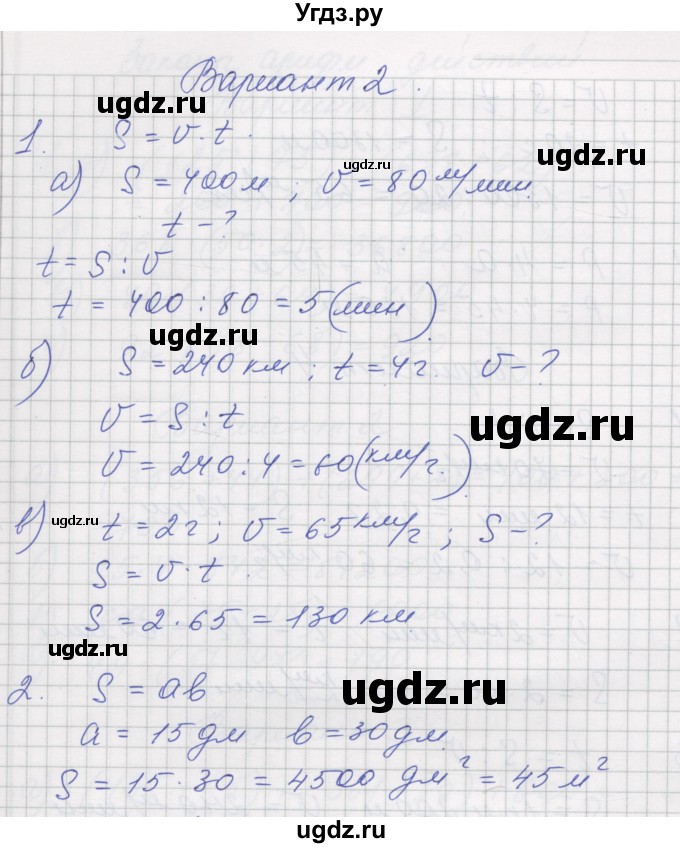 Угдз.ру
Вариант 2.
ugdz.ru
1. S = v · t.
ugdz.ru
а) S = 400 м ; v = 80 м/мин.
t - ?
t = S : v
t = 400 : 80 = 5 (мин)
ugdz.ru
б) S = 240 км ; t = 4 г. v - ?
v = S : t
ugdz.ru
v = 240 : 4 = 60 (км/г.)
ugdz.ru
в) t = 2 г ; v = 65 км/г ; S - ?
S = v · t.
S = 2 · 65 = 130 км
ugdz.ru
2. S = ав
ugdz.ru
а = 15 дм в = 30 дм.
S = 15 · 30 = 4500 дм² = 45 м²
ugdz.ru